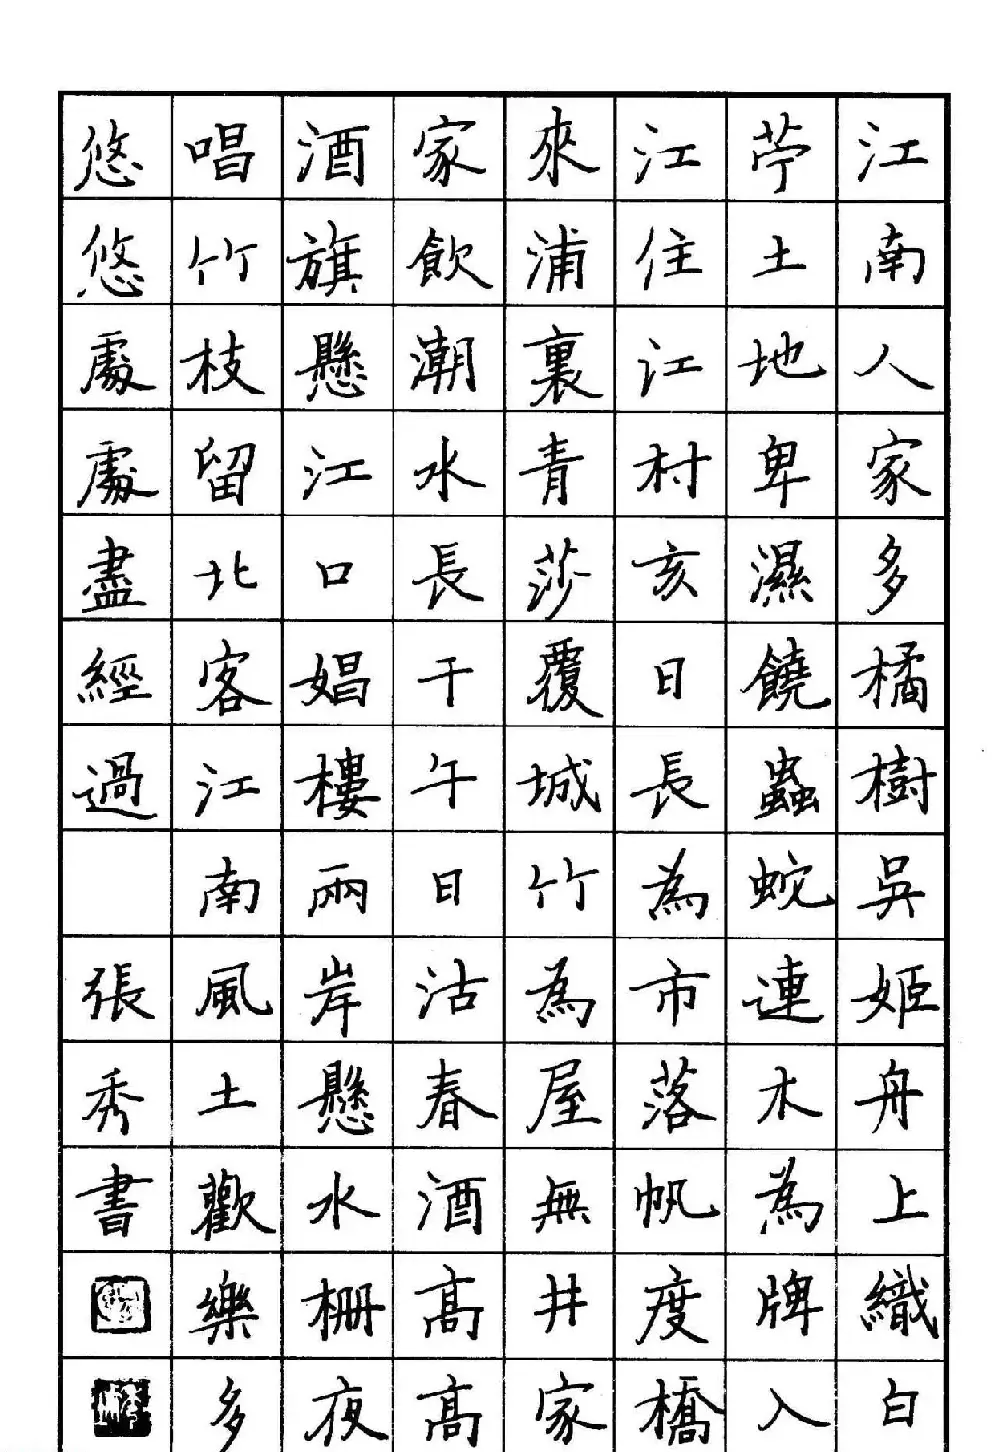 江南人家多橘樹吳姬舟上織白
苧土地卑濕饒蟲蛇連木為牌入
江住江村亥日長為市落帆度橋
來浦裏青莎覆城竹為屋無井家
家飲潮水長干午日沽春酒高高
酒旗懸江口娼樓兩岸懸水柵夜
唱竹枝留北客江南風土歡樂多
悠悠處處盡經過 張秀書